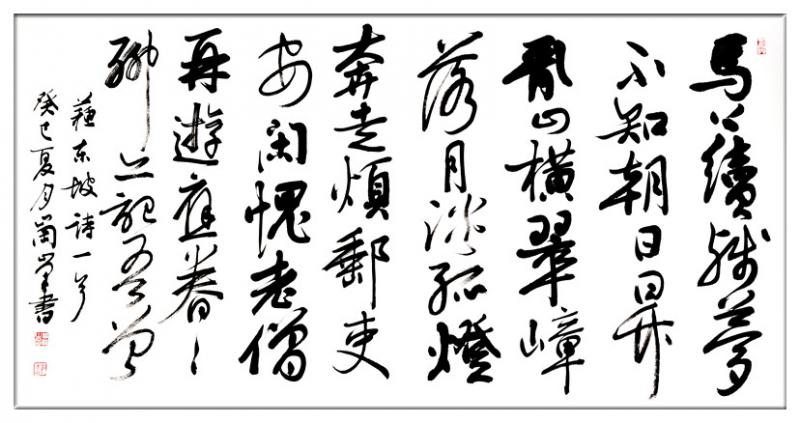 馬上續殘夢
不知朝日昇
亂山橫翠嶂
落月淡孤燈
奔走煩郵吏
安閑愧老僧
再遊應眷々
聊亦記吾曾
蘇東坡詩一首
癸巳夏月書